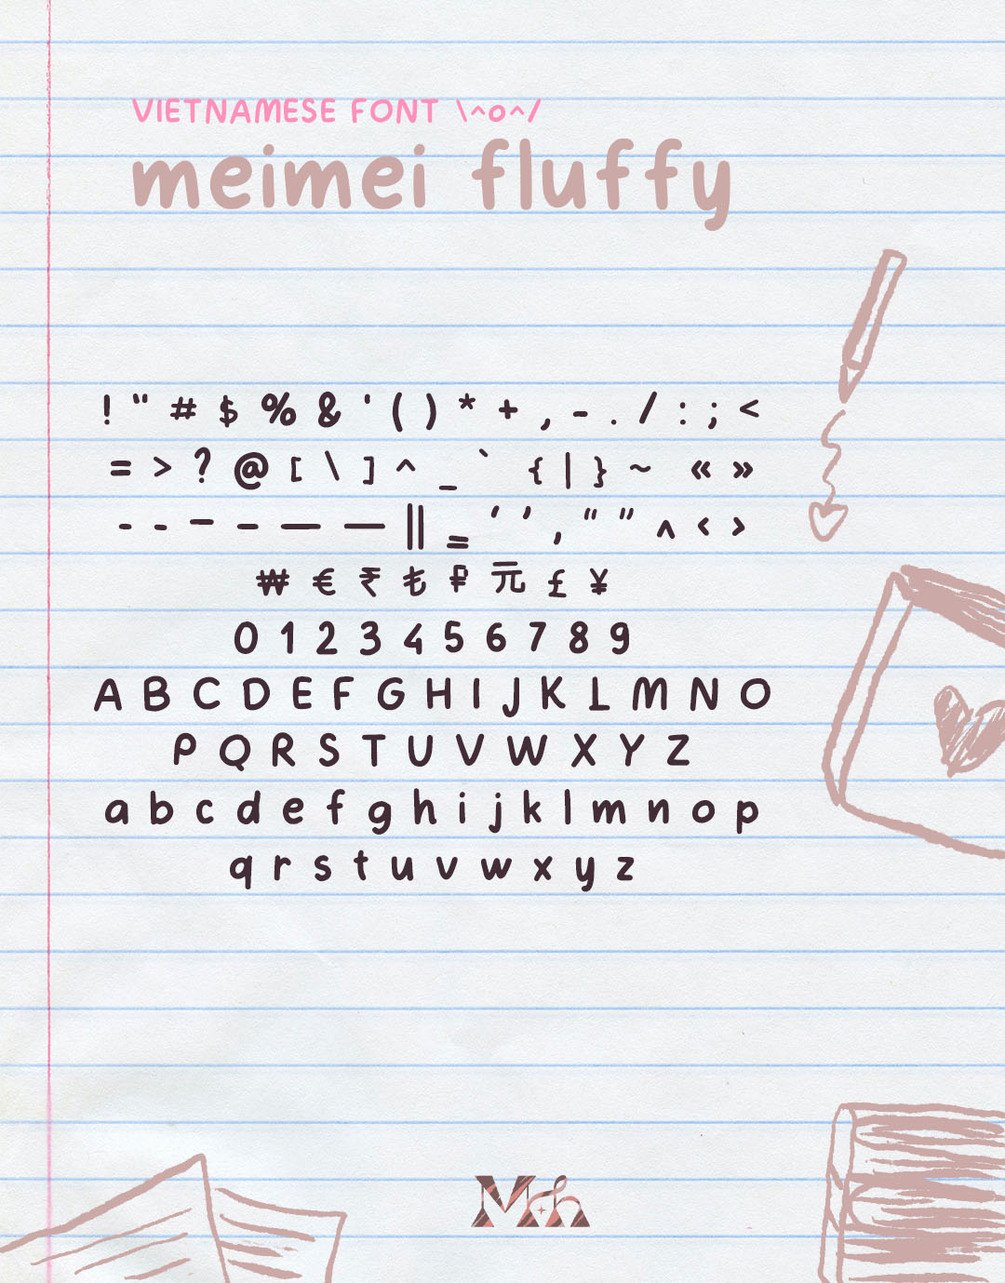 VIETNAMESE FONT \^o^/
meimei fluffy
! " # $ % & ' ( ) * + , - . / : ; <
= > ? @ [ \ ] ^ _ ` { | } ~ « »
‐ - ‒ – — ― ‖ ‗ ‘ ’ ‚ “ ” ‸ ‹ ›
₩ € ₹ ₺ ₽ 元 £ ¥
0 1 2 3 4 5 6 7 8 9
A B C D E F G H I J K L M N O
P Q R S T U V W X Y Z
a b c d e f g h i j k l m n o p
q r s t u v w x y z